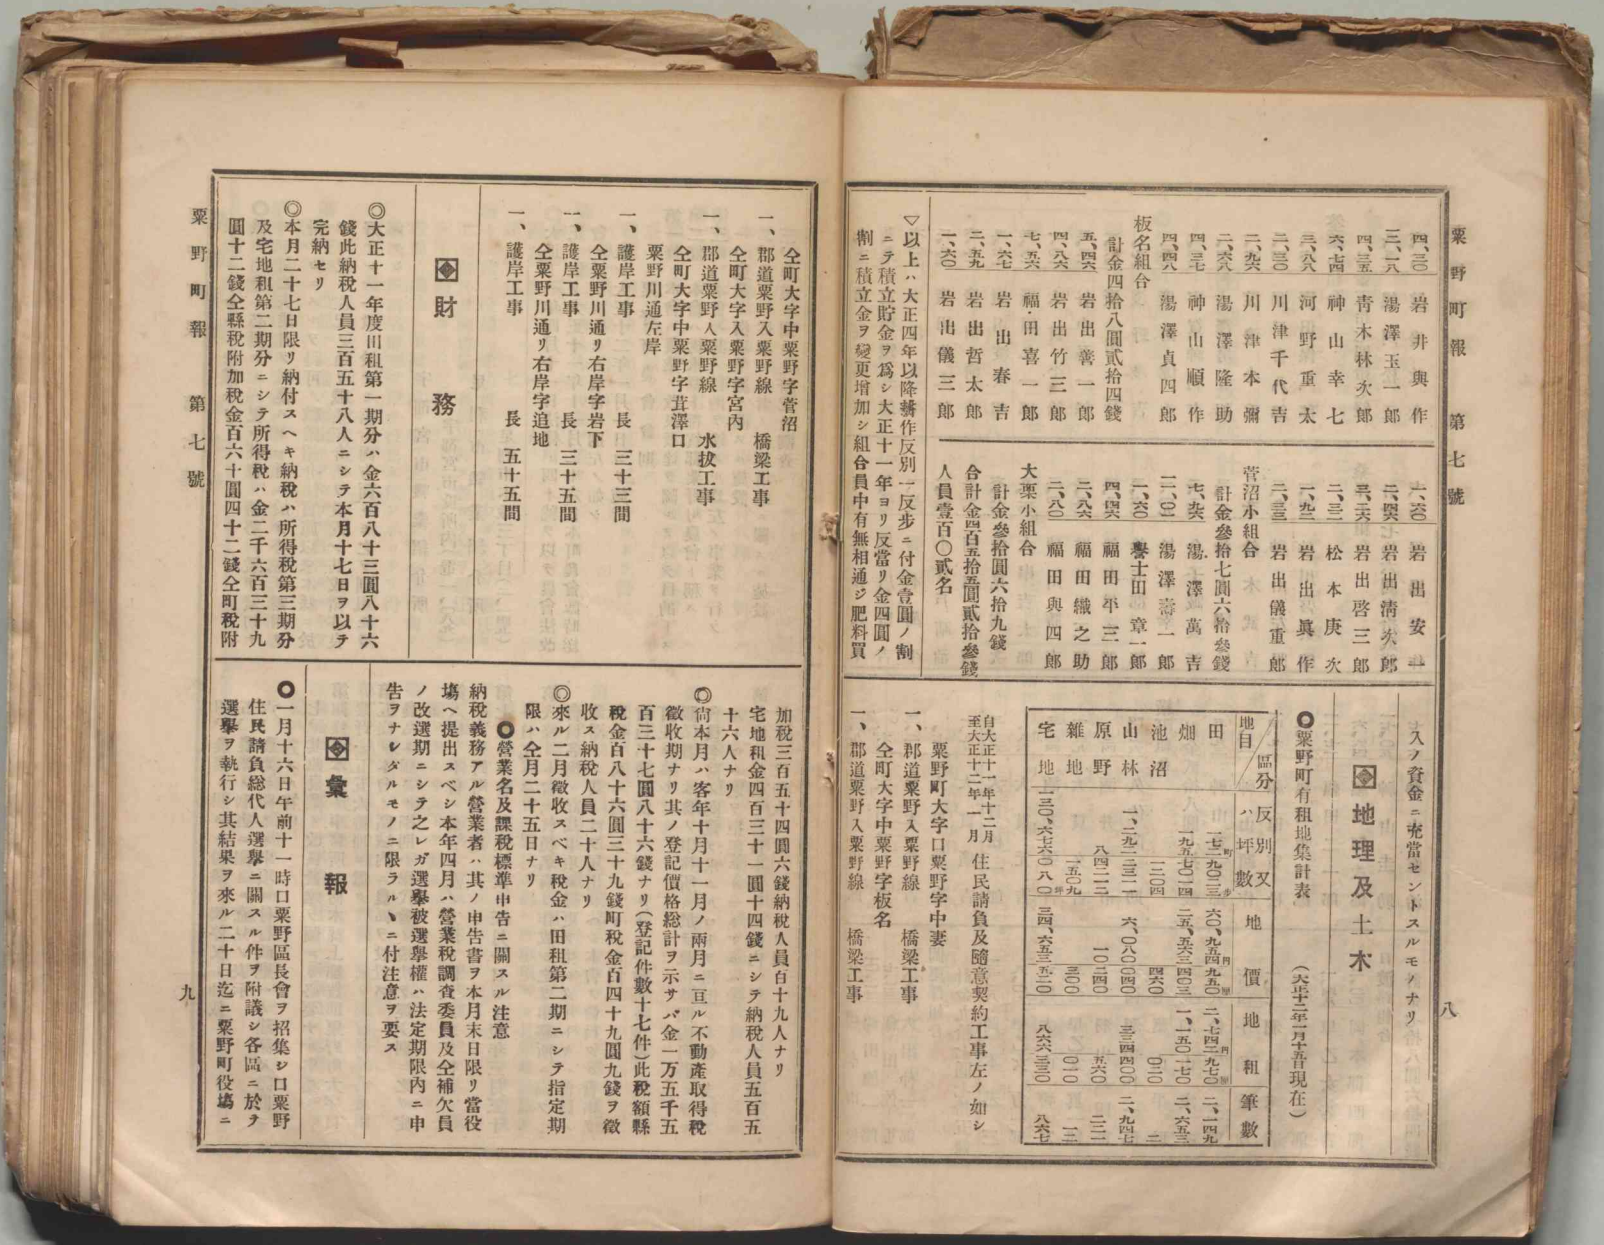 粟野町報　第七號
八
四、三〇　岩井與作
三、一八　湯澤玉一郎
四、三五　靑木林次郎
六、七四　神山幸七
三、八八　河野重太
二、三〇　川津千代吉
二、九六　川津本彌
二、六八　湯澤隆助
四、三七　神山順作
四、四八　湯澤貞四郎
板名組合
計金四拾八圓貳拾四錢
五、四六　岩出善一郎
四、八六　岩出竹三郎
七、五六　福田喜一郎
一、六七　岩出春吉
二、五九　岩出哲太郎
一、六〇　岩出儀三郎
一、六〇　岩出安一
二、四六　岩出淸次郎
三、二六　岩出啓三郎
二、三二　松本庚次
一、九二　岩出眞作
二、三三　岩出儀重郎
菅沼小組合
計金參拾七圓六拾參錢
七、九六　湯澤萬吉
一一、〇二　湯澤壽一郎
一、六〇　譽士田章一郎
四、四六　福田平三郎
二、八六　福田織之助
二、八〇　福田與四郎
大栗小組合
計金參拾圓六拾九錢
合計金四百五拾五圓貳拾參錢
人員壹百〇貳名
▽以上ハ大正四年以降耕作反別一反步ニ付金壹圓ノ割
ニテ積立貯金ヲ爲シ大正十一年ヨリ反當リ金四圓ノ
割ニ積立金ヲ變更增加シ組合員中有無相通ジ肥料買
入ノ資金ニ充當セントスルモノナリ
地理及土木
◎粟野町有租地集計表　(大正十二年一月十五日現在)
地目　區分　反別又ハ坪數　地價　地租　筆數
田　一七二町九〇二三步　六〇、九五四圓九五〇厘　二、七四二圓九七〇厘　二、一四九
畑　一九五七〇一四　二五、五六三四〇三　一、一五〇一七〇　二、六五三
池沼　一二〇四　四六〇　〇二〇　二
山林　一、二九二二三二一　六、〇八〇〇四〇　三三四四〇〇　二、九四七
原野　八四二一二　一〇二四〇　五六〇　二二一
雜地　一五〇九　三〇〇　〇一〇　一二
宅地　一三〇、六七六〇八〇坪　三四、六五三五二〇　八六六三三〇　八六七
自大正十一年十二月
至大正十二年一月　住民請負及隨意契約工事左ノ如シ
粟野町大字口粟野字中妻
一、郡道粟野入粟野線　橋梁工事
仝町大字中粟野字板名
一、郡道粟野入粟野線　橋梁工事
仝町大字中粟野字菅沼
一、郡道粟野入粟野線　橋梁工事
仝町大字入粟野字宮內
一、郡道粟野入粟野線　水拔工事
仝町大字中粟野字茸澤口
粟野川通左岸
一、護岸工事　長　三十三間
仝粟野川通リ右岸字岩下
一、護岸工事　長　三十五間
仝粟野川通リ右岸字追地
一、護岸工事　長　五十五間
財務
◎大正十一年度田租第一期分ハ金六百八十三圓八十六
錢此納稅人員三百五十八人ニシテ本月十七日ヲ以テ
完納セリ
◎本月二十七日限リ納付スヘキ納稅ハ所得稅第三期分
及宅地租第二期分ニシテ所得稅ハ金二千六百三十九
圓十二錢仝縣稅附加稅金百六十圓四十二錢仝町稅附
加稅三百五十四圓六錢納稅人員百十九人ナリ
宅地租金四百三十一圓十四錢ニシテ納稅人員五百五
十六人ナリ
◎尙本月ハ客年十月十一月ノ兩月ニ亘ル不動產取得稅
徵收期ナリ其ノ登記價格總計ヲ示サバ金一万五千五
百三十七圓八十六錢ナリ(登記件數十七件)此稅額縣
稅金百八十六圓三十九錢町稅金百四十九圓九錢ヲ徵
收ス納稅人員二十人ナリ
◎來ル二月徵收スベキ稅金ハ田租第二期ニシテ指定期
限ハ仝月二十五日ナリ
◎營業名及課稅標準申告ニ關スル注意
納稅義務アル營業者ハ其ノ申告書ヲ本月末日限リ當役
塲ヘ提出スベシ本年四月ハ營業稅調査委員及仝補欠員
ノ改選期ニシテ之レガ選擧被選擧權ハ法定期限內ニ申
告ヲナシタルモノニ限ラルヽニ付注意ヲ要ス
彙報
◎一月十六日午前十一時口粟野區長會ヲ招集シ口粟野
住民請負總代人選擧ニ關スル件ヲ附議シ各區ニ於テ
選擧ヲ執行シ其結果ヲ來ル二十日迄ニ粟野町役塲ニ
粟野町報　第七號
九